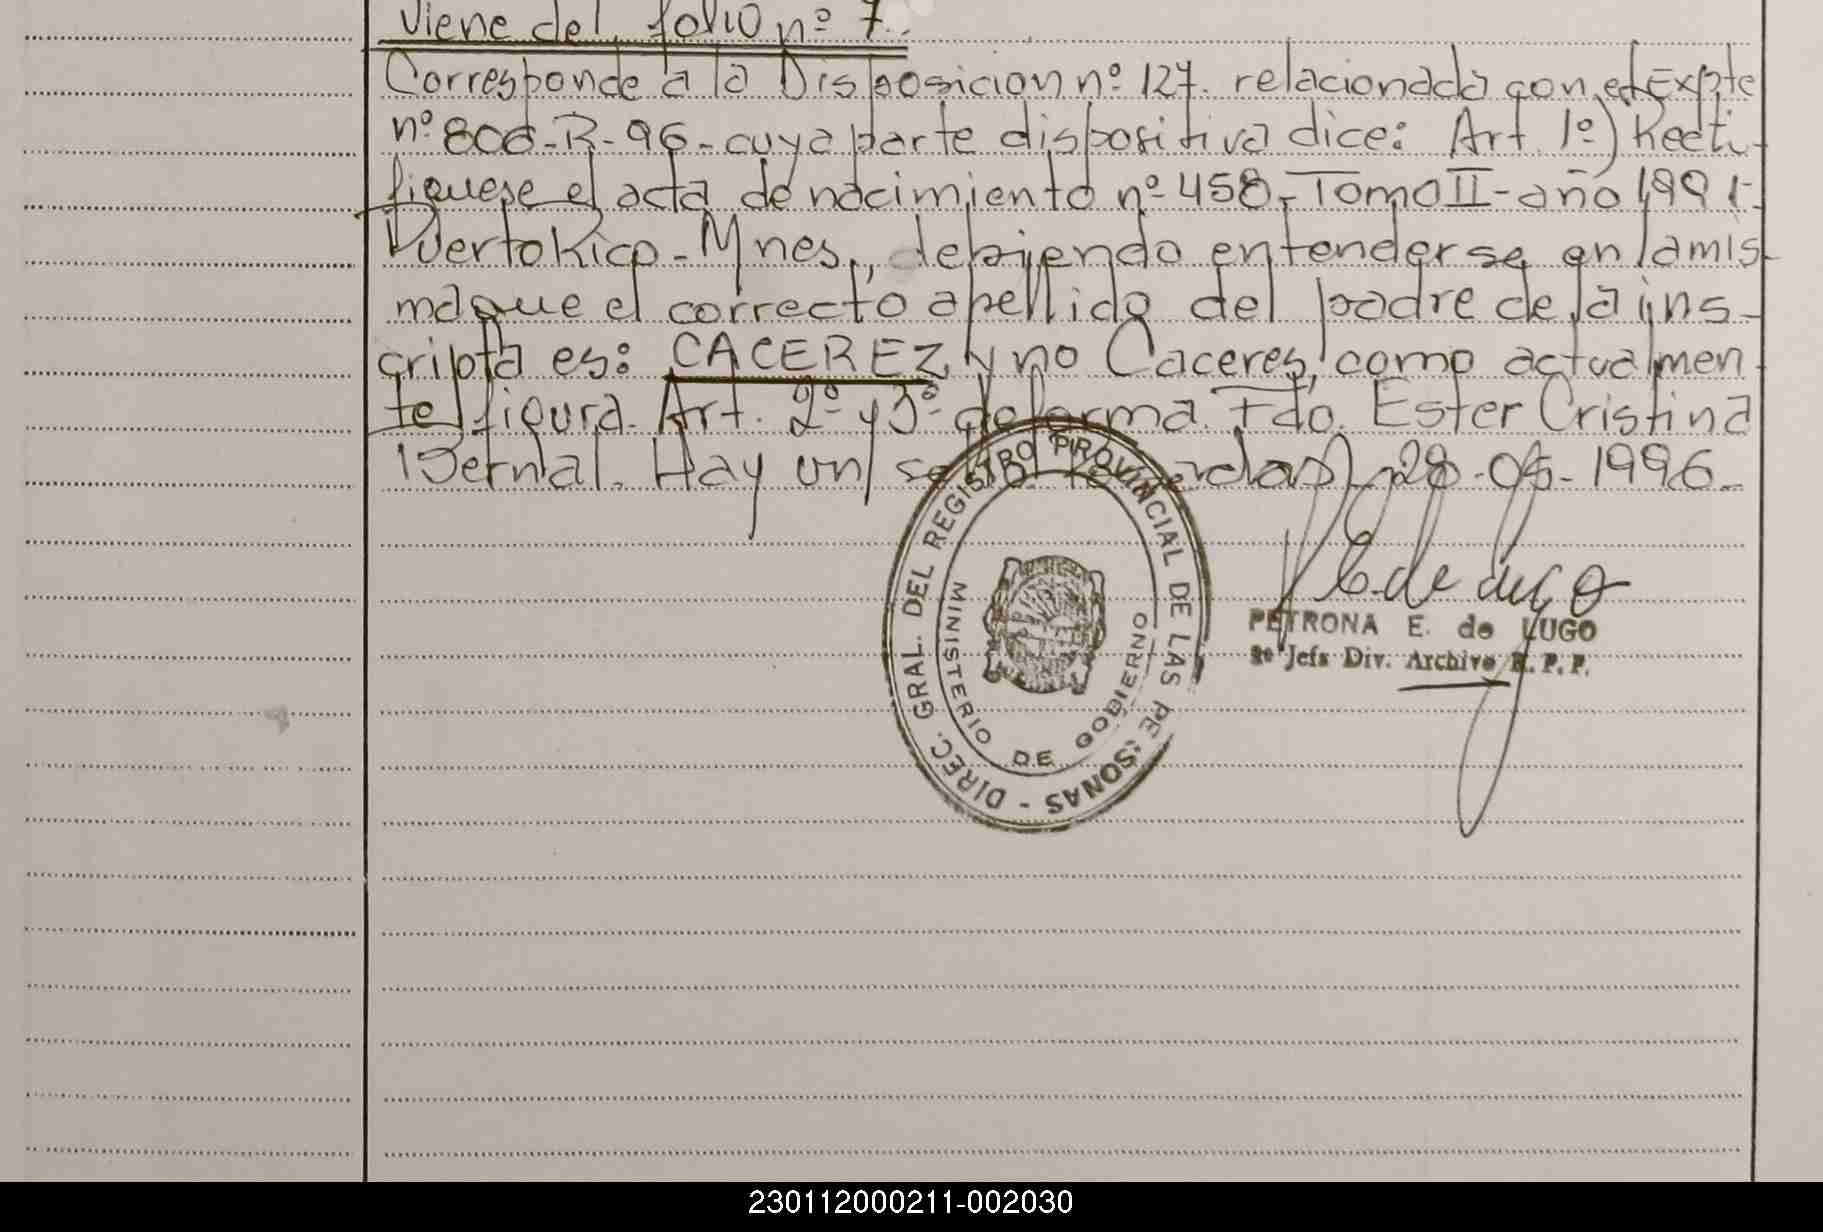 Viene del folio nº 7.
Corresponde a la Disposicion nº 127. relacionada con el Expte
nº 806-R-96-cuya parte dispositiva dice: Art 1º) Recti-
fiquese el acta de nacimiento nº 458-Tomo II-año 1991-
Puerto Rico-Mnes., debiendo entenderse en la mis-
ma que el correcto apellido del padre de la ins-
cripta es: CACEREZ y no Caceres, como actualmen
te figura. Art. 2º y 3º de forma. Fdo. Ester Cristina
Bernal. Hay un sello. Posadas, 28-05-1996-
DIREC. GRAL. DEL REGISTRO PROVINCIAL DE LAS PERSONAS -
MINISTERIO DE GOBIERNO
PETRONA E. de LUGO
2º Jefa Div. Archivo R. P. P.
230112000211-002030